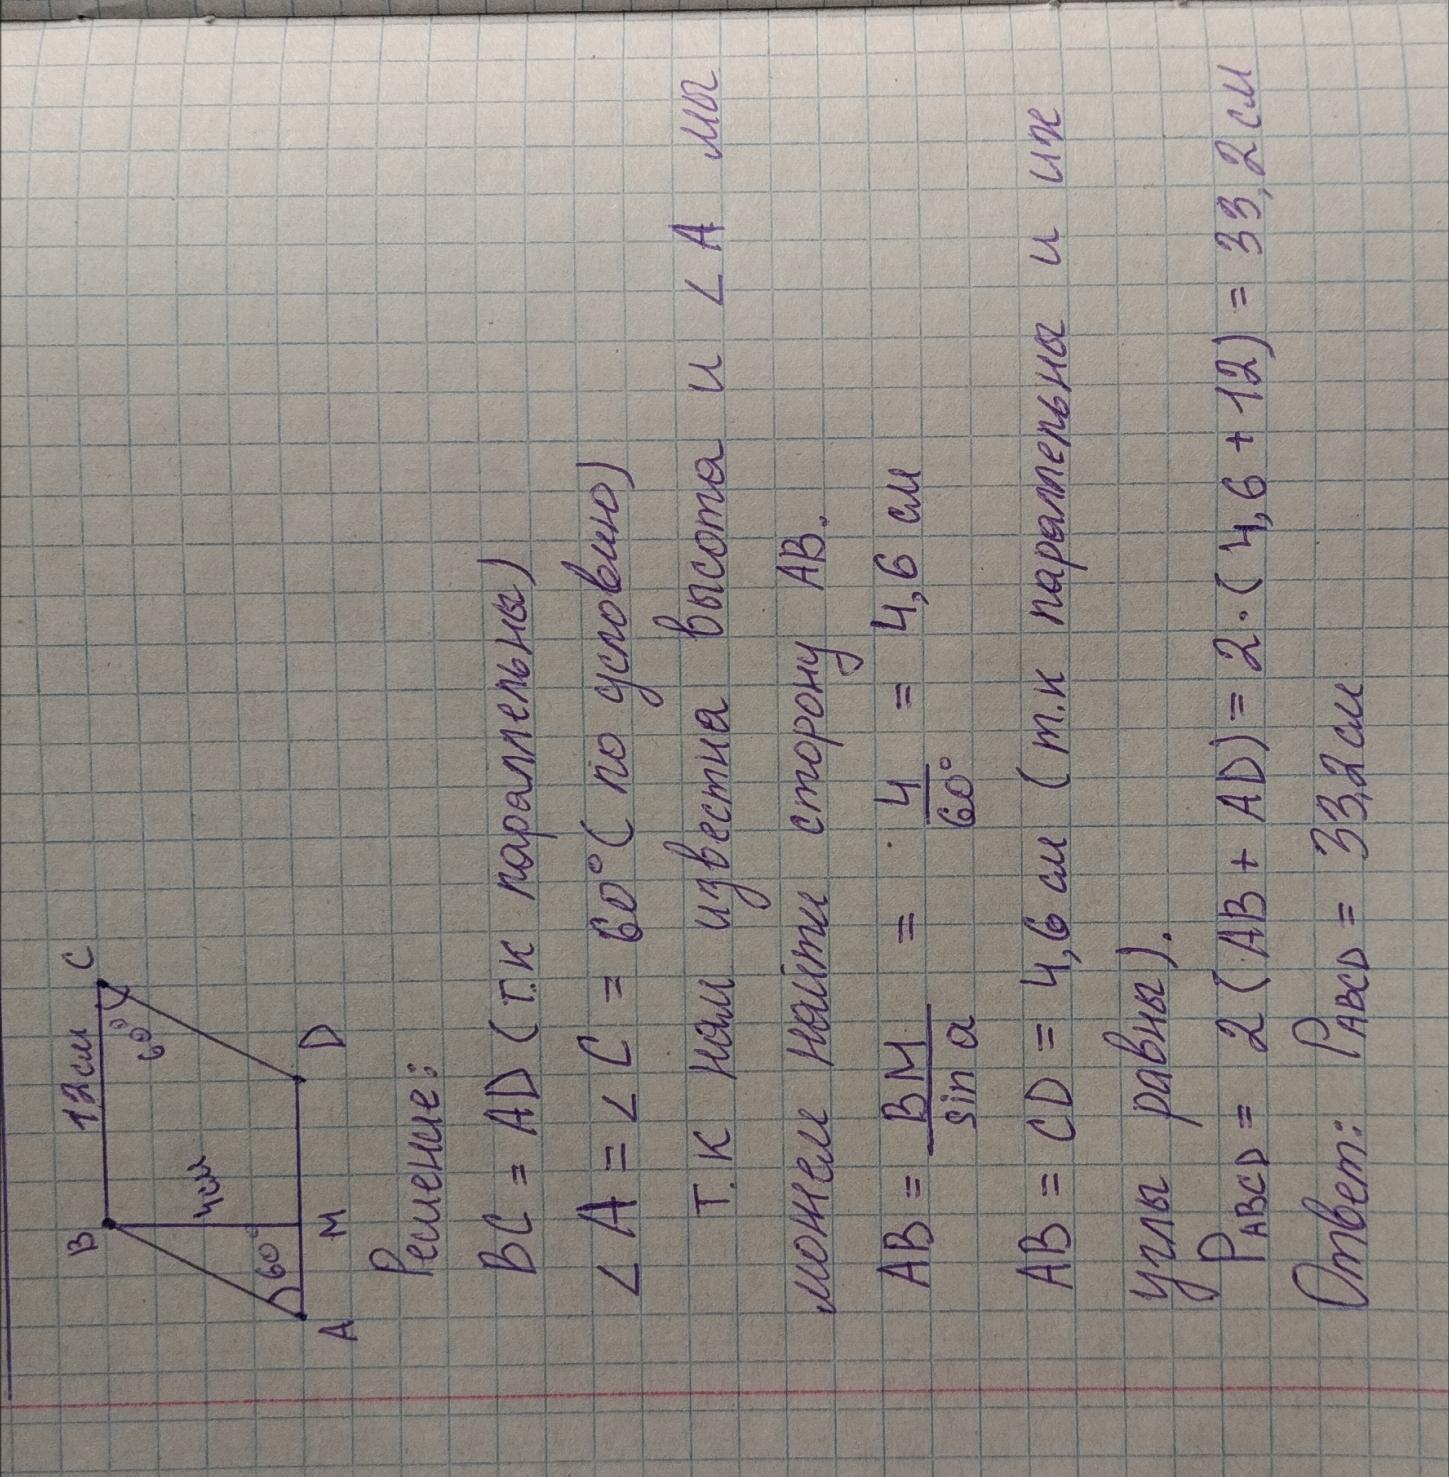 B 12см C
60°
4см
60°
A M D
Решение:
BC = AD (т.к параллельны)
∠A = ∠C = 60° (по условию)
т.к нам известна высота и ∠A мы
можем найти сторону AB.
AB = BM/sin a = 4/60° = 4,6 см
AB = CD = 4,6 см (т.к параллельны и их
углы равны).
PABCD = 2(AB + AD) = 2·(4,6 + 12) = 33,2 см
Ответ: PABCD = 33,2 см